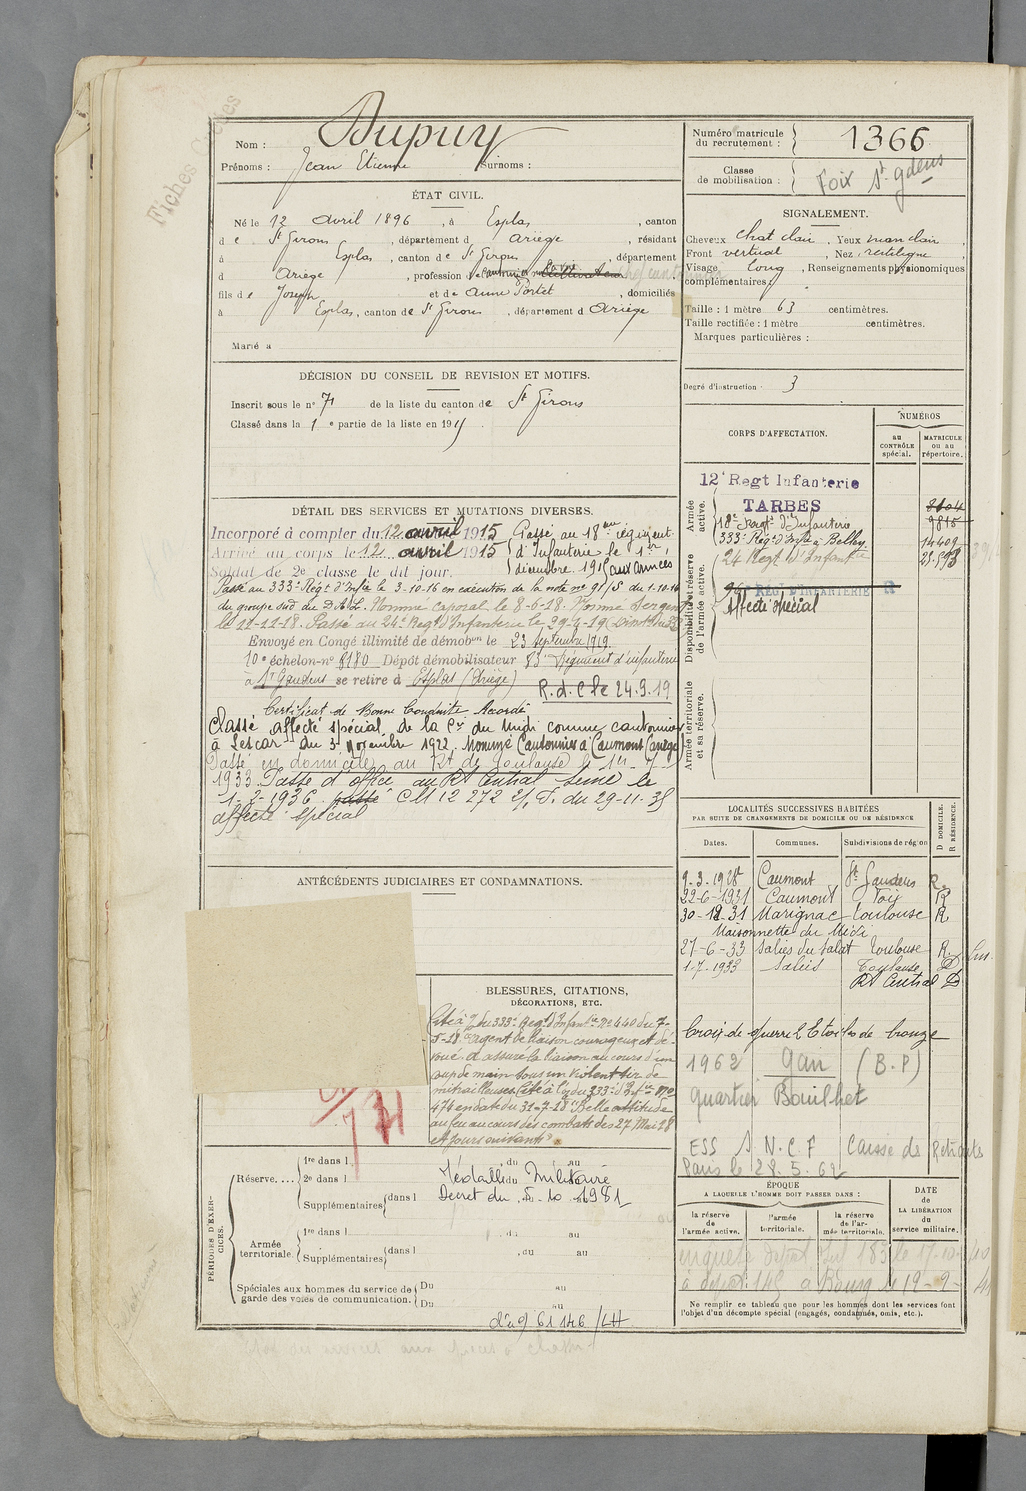 Fiches
Nom : Dupuy
Prénoms : Jean Etienne Surnoms :
Numéro matricule du recrutement : 1366
Classe de mobilisation : Foix St gdens
ÉTAT CIVIL.
Né le 12 avril 1896, à Esplas, canton
de St Girons, département d Ariège, résidant
à Esplas, canton de St Girons, département
d Ariège, profession de
fils de Joseph et de Anne Portet, domiciliés
à Esplas, canton de St Girons, département d Ariège
Marié à
SIGNALEMENT.
Cheveux chat clair, Yeux marr clair,
Front vertical, Nez rectiligne,
Visage long, Renseignements physionomiques
complémentaires :
Taille : 1 mètre 63 centimètres.
Taille rectifiée : 1 mètre centimètres.
Marques particulières :
Degré d'instruction : 3
DÉCISION DU CONSEIL DE REVISION ET MOTIFS.
Inscrit sous le n° 71 de la liste du canton de St Girons
Classé dans la 1e partie de la liste en 191
CORPS D'AFFECTATION.
NUMÉROS
au CONTRÔLE spécial.
MATRICULE ou au répertoire.
Armée active.
12e Regt Infanterie
TARBES
18e Regt d'Infanterie 9815
333e Regt d'Infie à Belley 14409
24 Regt d'Infantie
REG. D'INFANTERIE R
Affecté spécial
Disponibilité et réserve de l'armée active.
Armée territoriale et sa réserve.
DÉTAIL DES SERVICES ET MUTATIONS DIVERSES.
Incorporé à compter du 12 avril 1915 Passé au 18me régiment
Arrivé au corps le 12 avril 1915 d'Infanterie le 1er
Soldat de 2e classe le dit jour. décembre 191 (aux armées
Passé au 333e Régt d'Infie le 3-10-16 en exécution de la note no 91/S du 1-10-16
du groupe sud du D.A.L. Nommé caporal le 8-6-18. Nommé Sergent
le 11-11-18. Passé au 24e Regt d'Infanterie le 29-4-19
Envoyé en Congé illimité de démobon le 23 septembre 1919
10e échelon-no 6180 Dépôt démobilisateur 83e Régiment d'infanterie
à St Gaudens se retire à Esplas (Ariège)
R.d.C le 24.9.19
Certificat de Bonne Conduite Accordé
Classé affecté spécial de la Cie du Midi comme cantonnier
à Lescar du 3 Novembre 1922. Nommé Cantonnier à Caumont (Ariège)
Passé en domicile au Rt de Toulouse le 1er-7-
1933. Passé d'office au Rt Central Seine le
1-2-1936. passé CM 12 272 2/. du 29-11-35
affecté spécial
LOCALITÉS SUCCESSIVES HABITÉES
PAR SUITE DE CHANGEMENTS DE DOMICILE OU DE RÉSIDENCE
D DOMICILE. R RÉSIDENCE.
Dates. Communes. Subdivisions de région
9-3-1928 Caumont St Gaudens R.
22-6-1931 Caumont Foix R
30-12-31 Marignac Toulouse R
Maisonnette du Midi
27-6-33 Salies du Salat Toulouse R
1-7-1933 Salies Toulouse D
Rt Central D
ANTÉCÉDENTS JUDICIAIRES ET CONDAMNATIONS.
BLESSURES, CITATIONS,
DÉCORATIONS, ETC.
Cité à l'o/ du 333e Regt d'Infantie No 440 du 7-
5-18. Agent de liaison courageux et dé-
voué. A assuré la liaison au cours d'un
coup de main sous un violent tir de
mitrailleuses. Cité à l'o/ du 333e d'Infie No
474 en date du 31-7-18 "Belle attitude
au feu au cours des combats des 27 Mai 18
et jours suivants"
Croix de guerre 2 Etoiles de bronze
1962 Gan (B.P)
quartier Bouilhet
ESS S.N.C.F Caisse de Retraites
Paris le 28.5.62
PÉRIODES D'EXERCICES.
Réserve.... 1re dans l du au
2e dans l du au
Supplémentaires (dans l
Médaille Militaire
Décret du 5-10-1981
Armée territoriale. 1re dans l , du au
Supplémentaires (dans l , du au
Spéciales aux hommes du service de garde des voies de communication. Du au
Du au
61146/LH
ÉPOQUE
A LAQUELLE L'HOMME DOIT PASSER DANS :
la réserve de l'armée active. l'armée territoriale. la réserve de l'armée territoriale.
DATE de LA LIBÉRATION du service militaire.
Ne remplir ce tableau que pour les hommes dont les services font
l'objet d'un décompte spécial (engagés, condamnés, omis, etc.).